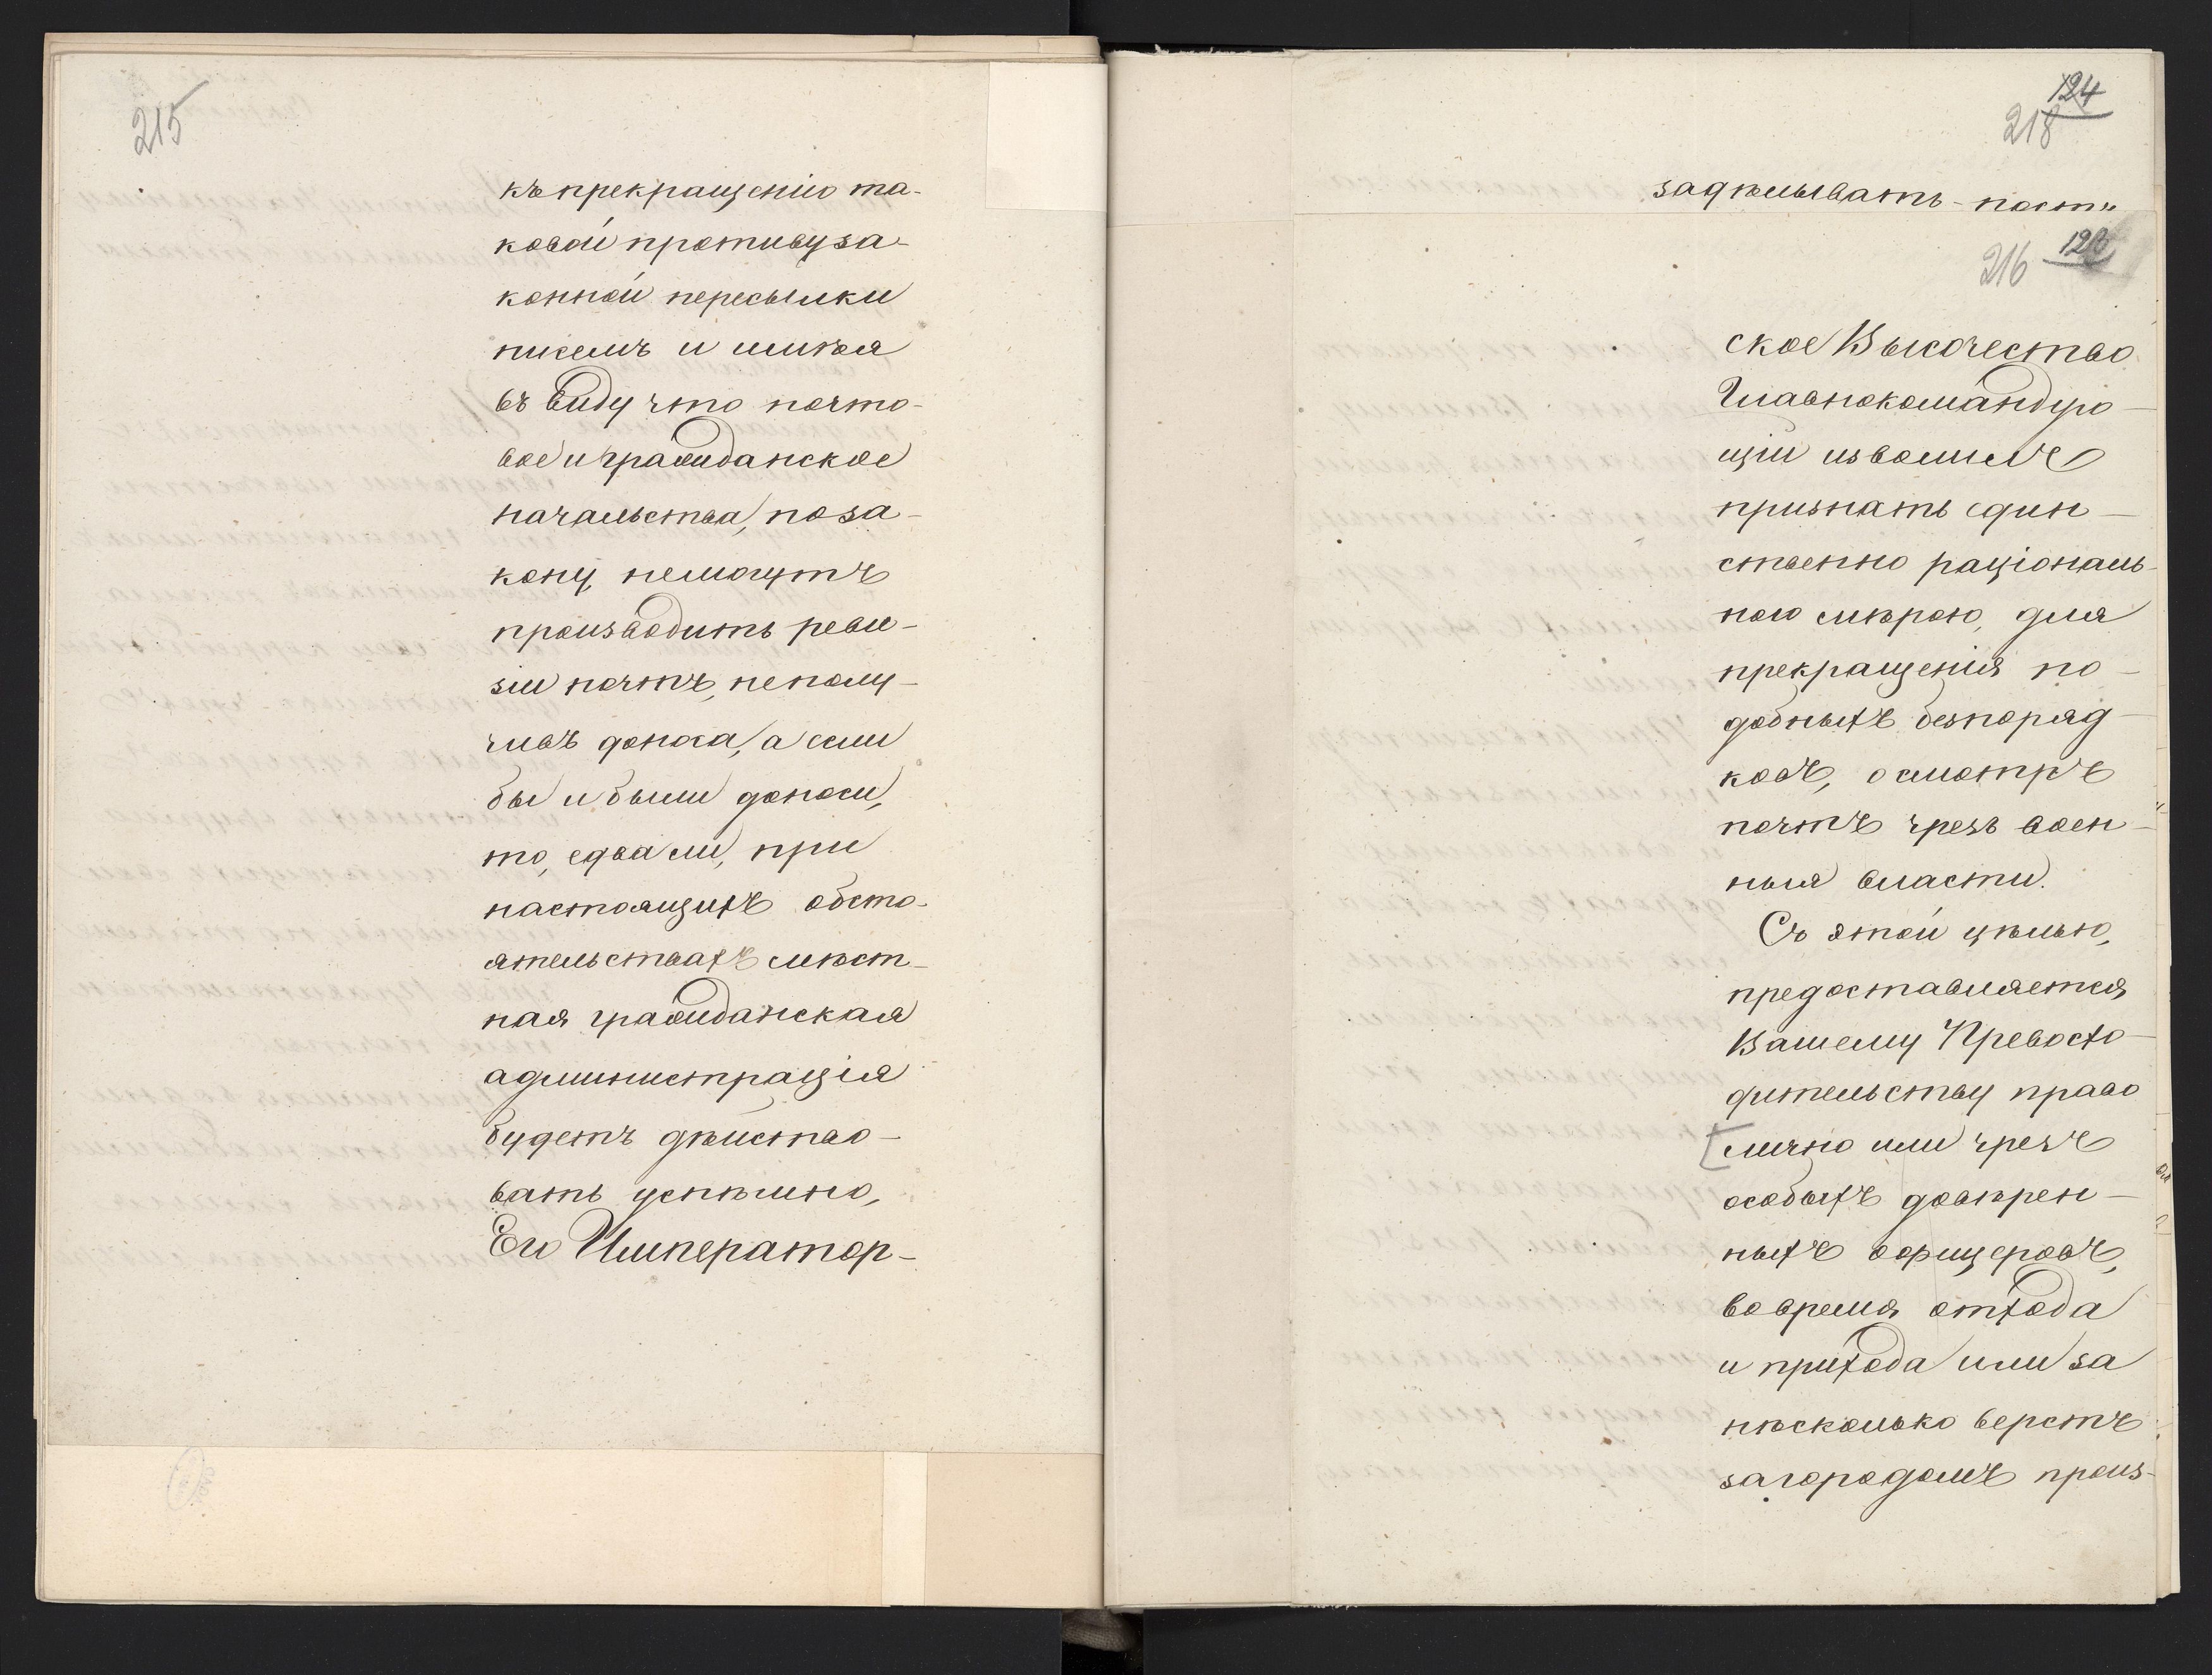 215
къ прекращенію та-
ковой противуза-
конной пересылки
писемъ и имѣя
въ виду что почто-
вое и гражданское
начальства, по за-
кону, не могутъ
производить реви-
зіи почтъ, не полу-
чивъ доноса, а если
бы и были доносы,
то, едва ли, при
настоящихъ обсто-
ятельствахъ мѣст-
ная гражданская
администрація
будетъ дѣйство-
вать успѣшно,
Его Император-
124
218
задѣлывать - пост
123
216
ское Высочество
Главнокомандую-
щій изволилъ
признать един-
ственно раціональ-
ною мѣрою, для
прекращенія по-
добныхъ безпоряд-
ковъ, осмотръ
почтъ чрезъ воен-
ныя власти.
Съ этой цѣлью,
предоставляется
Вашему Превосхо-
дительству право
лично или чрезъ
особыхъ довѣрен-
ныхъ офицеровъ,
во время отхода
и прихода или за
нѣсколько верстъ
за городомъ произ-